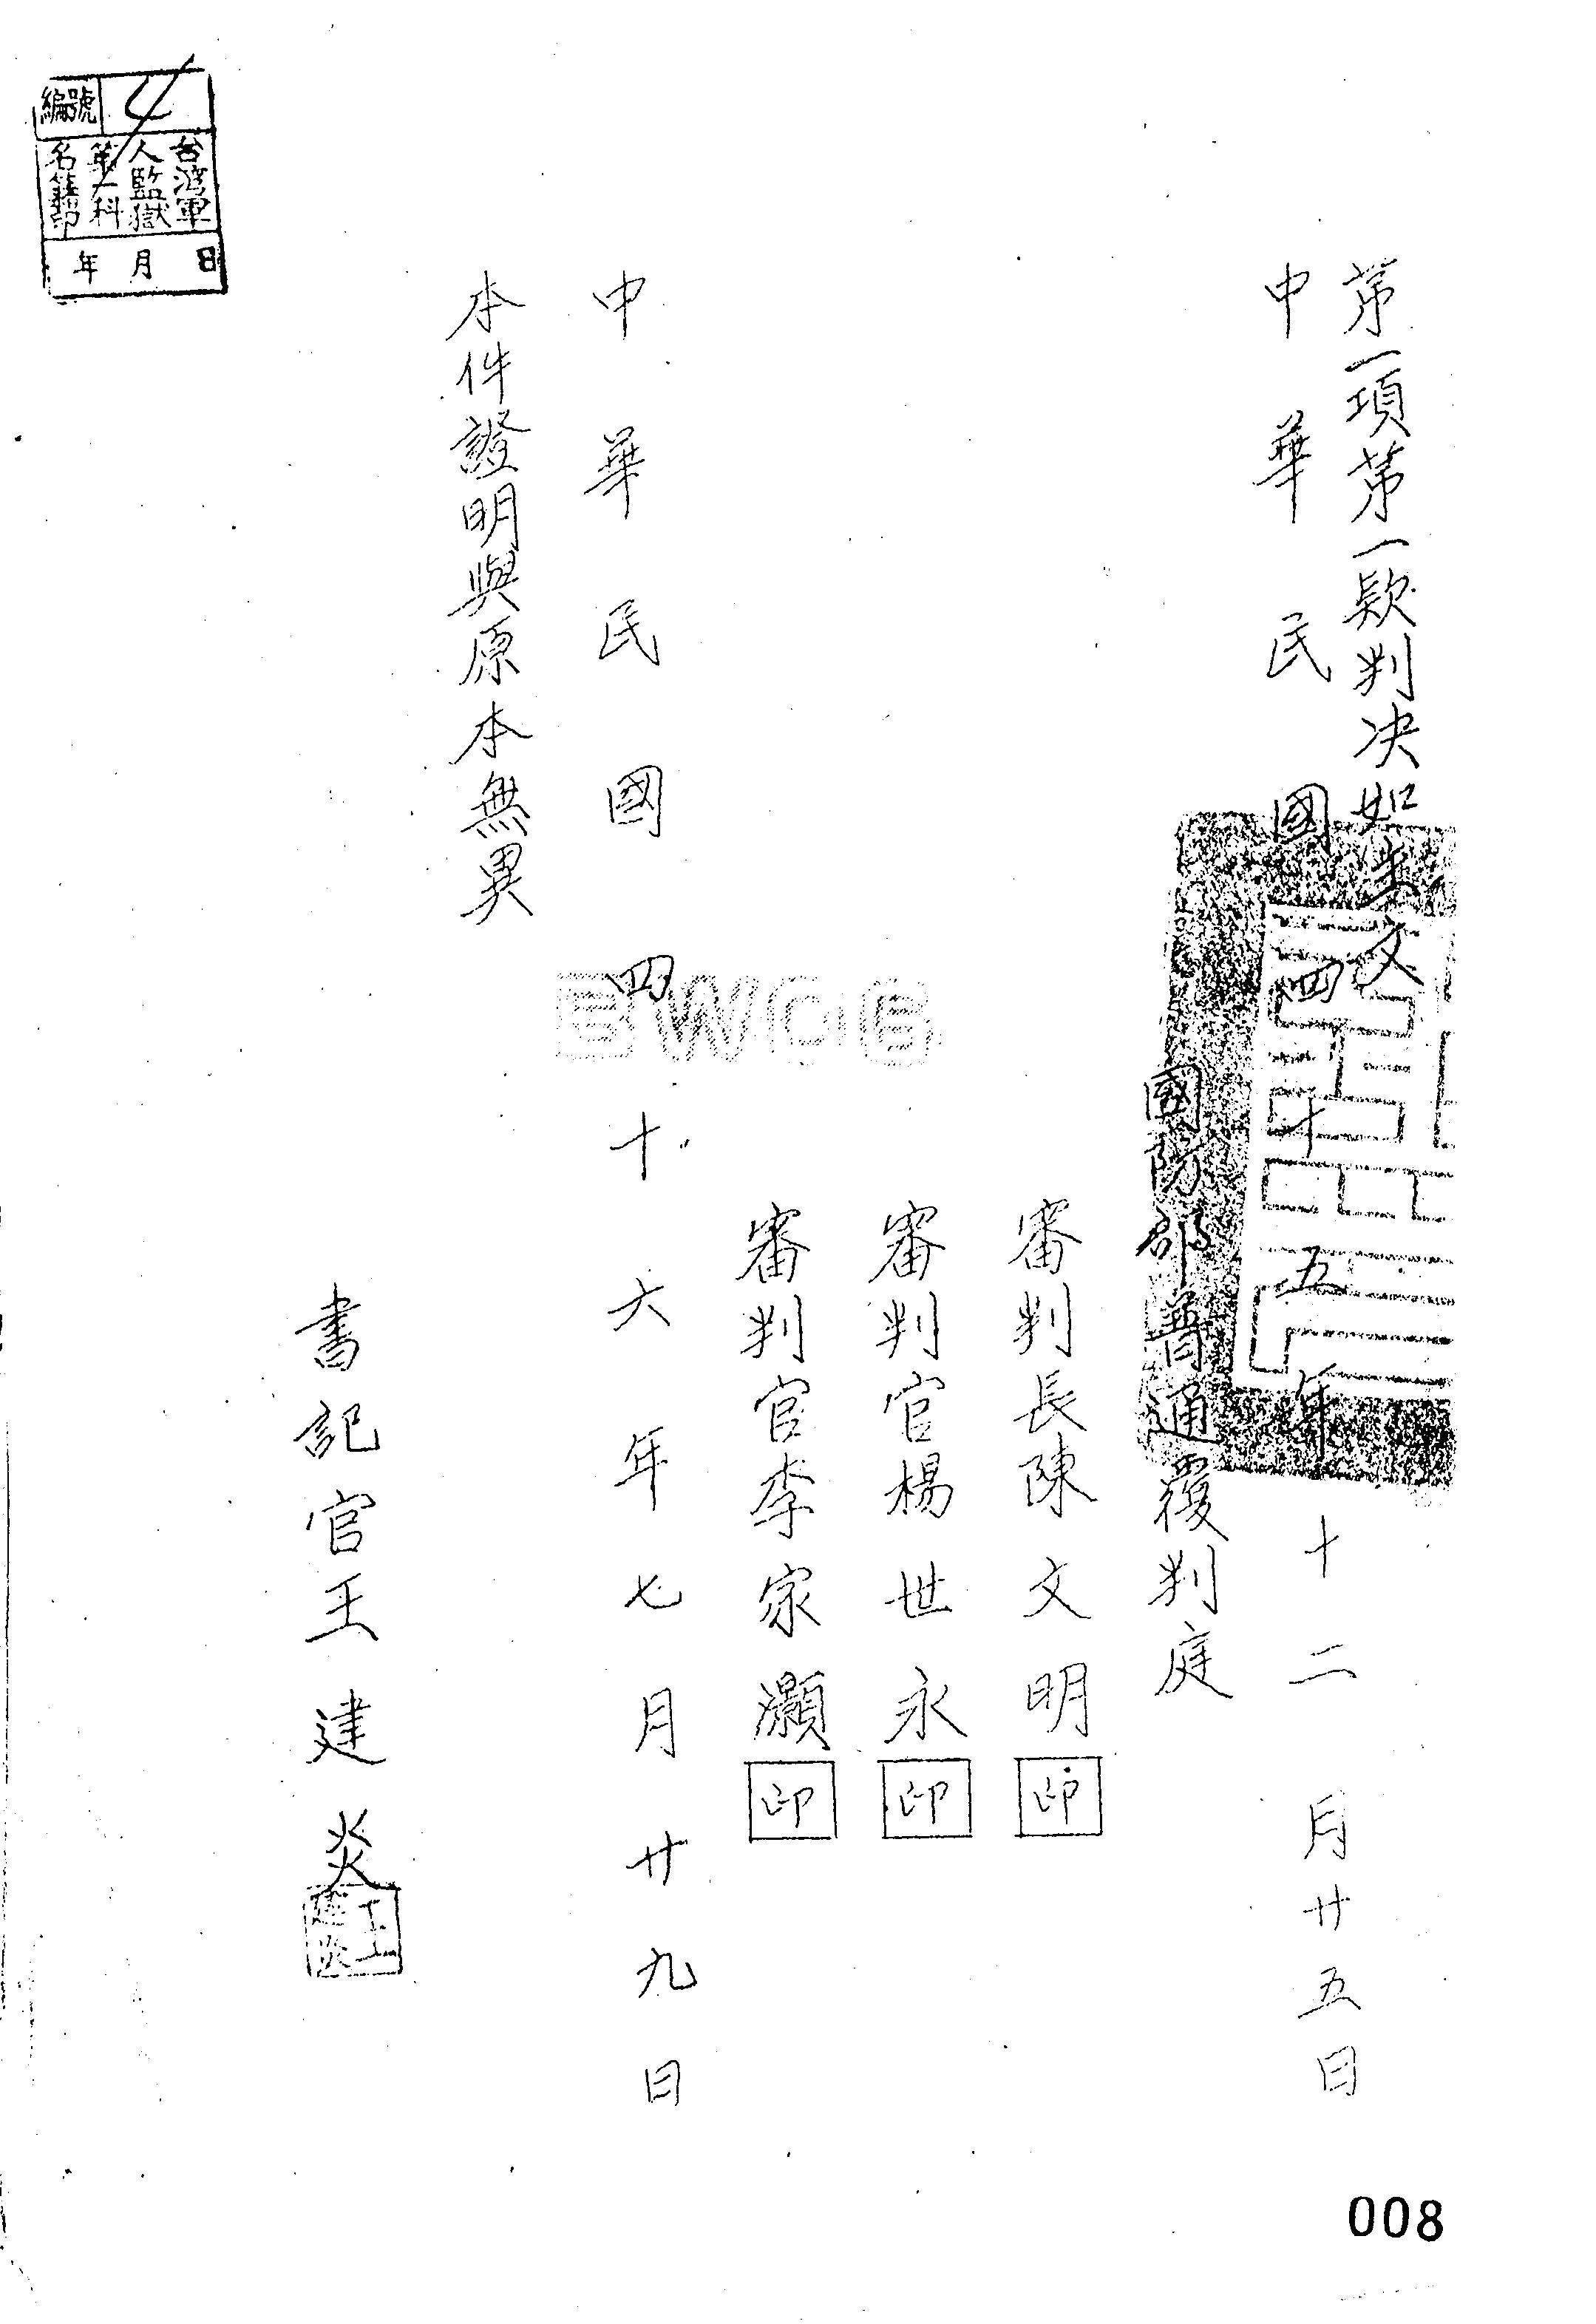 第一項第一款判決如主文
中華民國四十五年十二月廿五日
國防部普通覆判庭
審判長陳文明印
審判官楊世永印
審判官李家灝印
中華民國四十六年七月廿九日
本件證明與原本無異
書記官王建炎
王建炎
編號 4
台灣軍
人監獄
第一科
名籍印
年月日
008